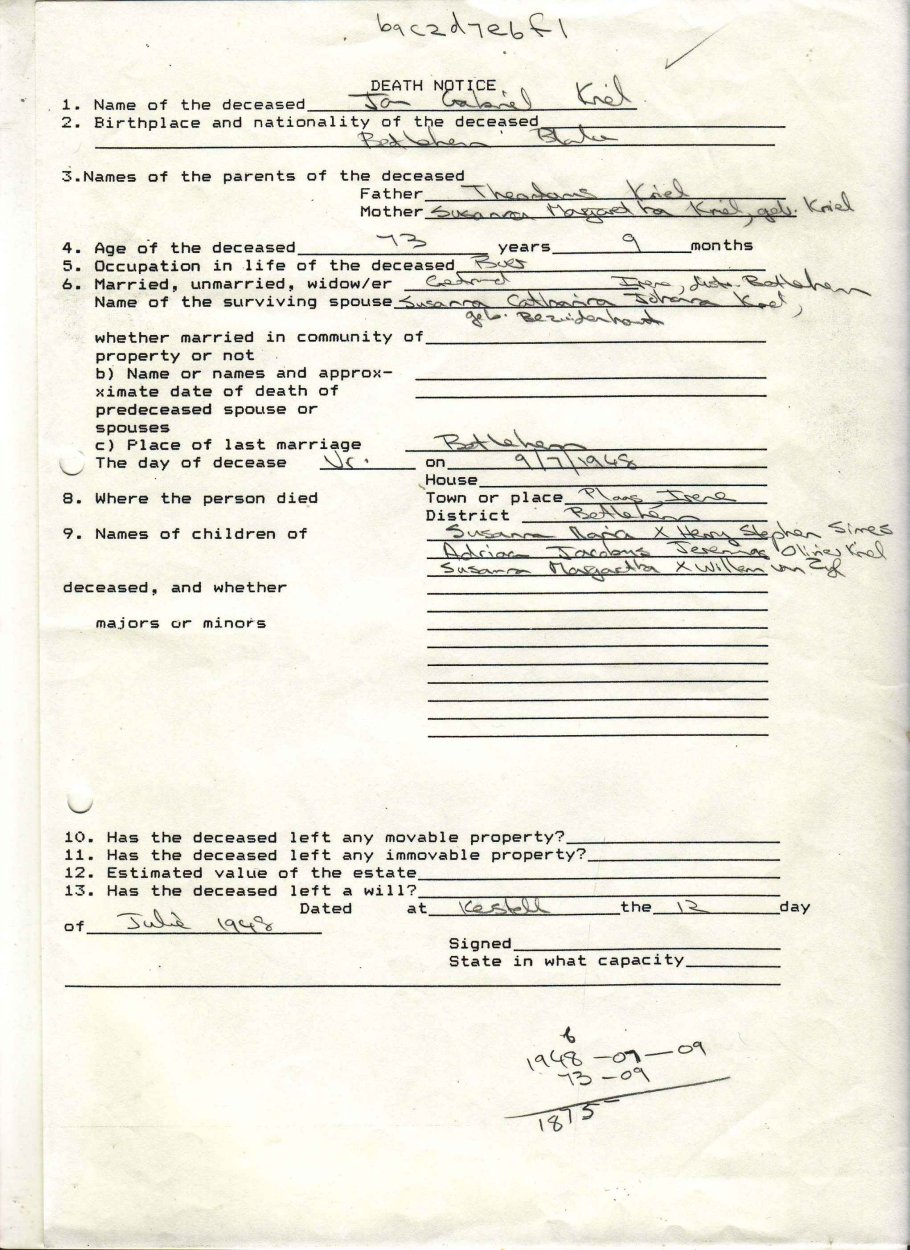 b9c2d7e6f1
DEATH NOTICE
1. Name of the deceased Jan Gabriel Kriel
2. Birthplace and nationality of the deceased
Bethlehem Blanke
3.Names of the parents of the deceased
Father Theodorus Kriel
Mother Susanna Margaretha Kriel, geb. Kriel
4. Age of the deceased 73 years 9 months
5. Occupation in life of the deceased Boer
6. Married, unmarried, widow/er Getroud Irene, distr. Bethlehem
Name of the surviving spouse Susanna Catharina Johanna Kriel,
geb. Bezuidenhout
whether married in community of
property or not
b) Name or names and approx-
ximate date of death of
predeceased spouse or
spouses
c) Place of last marriage Bethlehem
The day of decease Vr. on 9/7/1948
House
8. Where the person died Town or place Plaas Irene
District Bethlehem
9. Names of children of Susanna Maria X Henry Stephen Simes
Adriaan Jacobus Jeremias Olivier Kriel
Susanna Margaretha X Willem van Zyl
deceased, and whether
majors or minors
10. Has the deceased left any movable property?
11. Has the deceased left any immovable property?
12. Estimated value of the estate
13. Has the deceased left a will?
Dated at Kestell the 12 day
of Julie 1948
Signed
State in what capacity
6
1948-07-09
73-09
1875